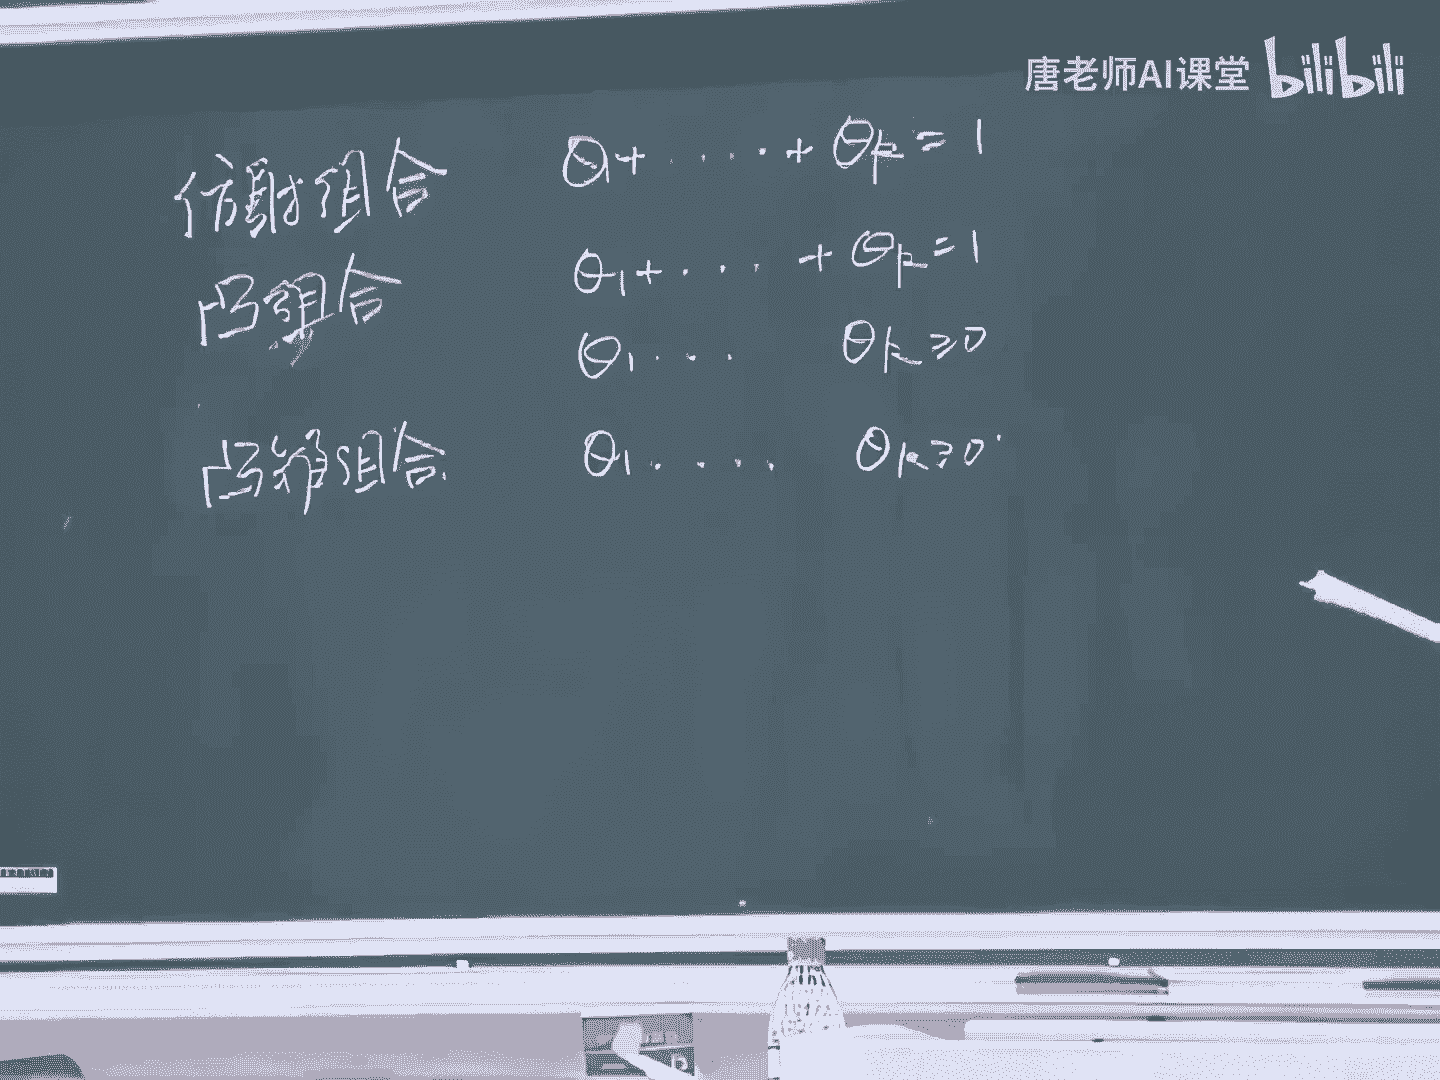 唐老师AI课堂 bilibili
仿射组合 θ1+ ····+ θk = 1
凸组合 θ1+··· + θk = 1
θ1··· θk ≥0
凸锥组合 θ1···· θk ≥0